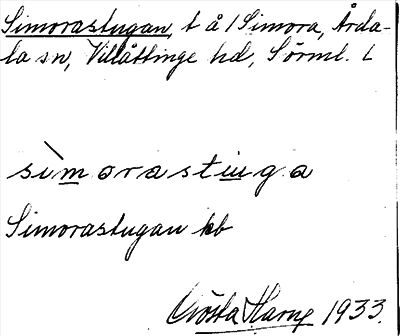 Simorastugan, t å 1 Simora, Årda-
la sn, Villåttinge hd, Sörml. L
sìmorastuga
Simorastugan kb
Gösta Harne 1933.